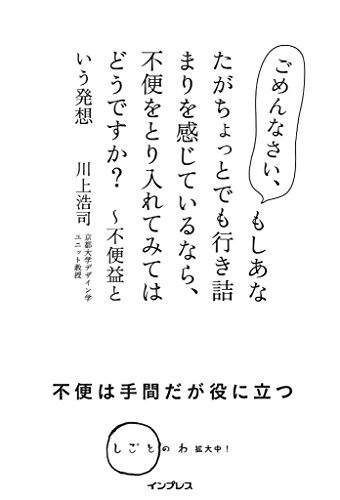 ごめんなさい、もしあな
たがちょっとでも行き詰
まりを感じているなら、
不便をとり入れてみては
どうですか？ ～不便益と
いう発想 川上浩司
京都大学デザイン学
ユニット教授
不便は手間だが役に立つ
しごとのわ 拡大中！
インプレス